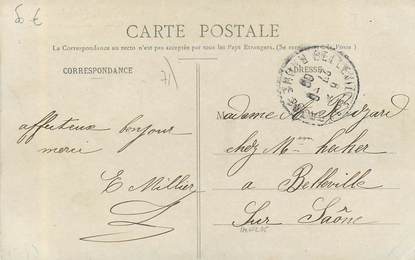 50 €
CARTE POSTALE
La Correspondance au recto n'est pas acceptée par tous les Pays Etrangers. (Se renseigner à la Poste)
CORRESPONDANCE
ADRESSE
71)
affectueux bonjour
merci
E Millier
Madame
chez Mme
a Belleville
Sur Saône